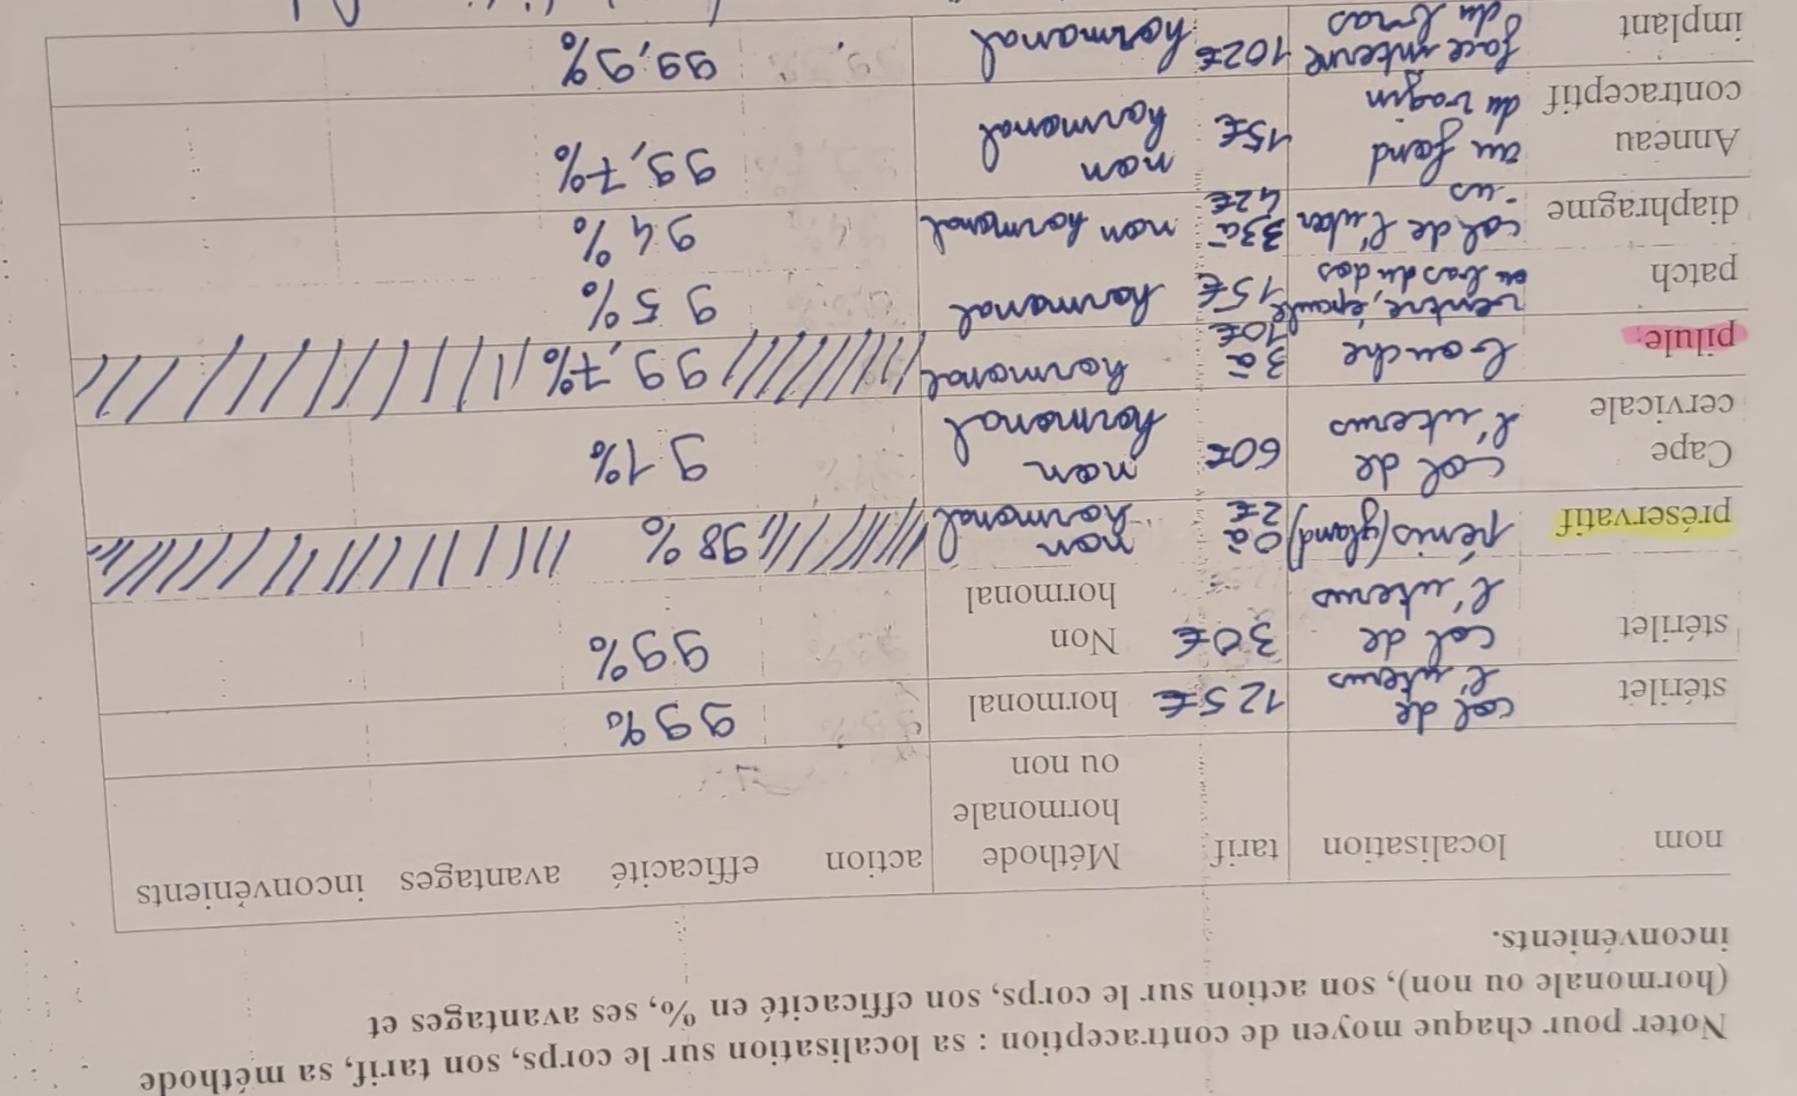 Noter pour chaque moyen de contraception : sa localisation sur le corps, son tarif, sa méthode
(hormonale ou non), son action sur le corps, son efficacité en %, ses avantages et
inconvénients.
nom localisation tarif Méthode hormonale ou non action efficacité avantages inconvénients
stérilet col de l'uterus 125€ hormonal 99%
stérilet col de l'uterus 30€ Non hormonal 99%
préservatif pénis (gland) 0 à 2€ non hormonal 98%
Cape cervicale col de l'uterus 60€ non hormonal 91%
pilule bouche 3 à 10€ hormonal 99,7%
patch ventre, épaule ou bas du dos 15€ hormonal 95%
diaphragme col de l'uter-us 33 à 42€ non hormonal 94%
Anneau contraceptif au fond du vagin 15€ non hormonal 99,7%
implant face interne du bras 102€ hormonal 99,9%